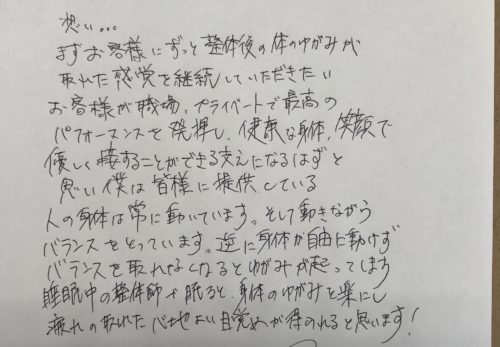 想い...
まずお客様にずっと整体後の体のゆがみが
取れた感覚を継続していただきたい
お客様が職場、プライベートで最高の
パフォーマンスを発揮し、健康な身体、笑顔で
優しく接することができる支えになるはずと
思い僕は皆様に提供している
人の身体は常に動いています。そして動きながら
バランスをとっています。逆に身体が自由に動けず
バランスを取れなくなるとゆがみが起ってします
睡眠中の整体師で眠ると、身体のゆがみを楽にし
疲れの取れた心地よい目覚めが得のれると思います!